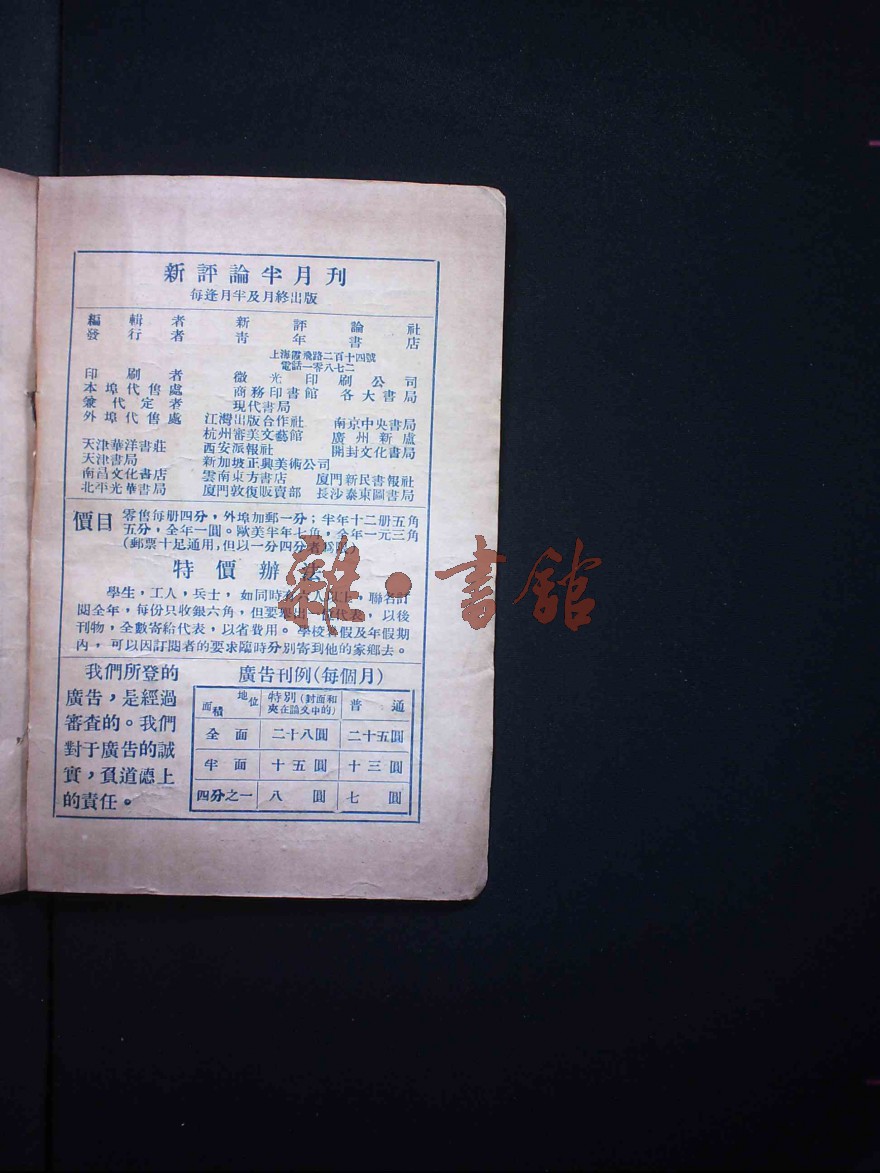 新評論半月刊
每逢月半及月終出版
編輯者 新評論社
發行者 靑年書店
上海霞飛路二百十四號
電話一零八七二
印刷者 徵光印刷公司
本埠代售處 商務印書館 各大書局
兼代定者 現代書局
外埠代售處 江灣出版合作社 南京中央書局
杭州審美文藝館 廣州新盧
天津華洋書莊 西安派報社 開封文化書局
天津書局 新加坡正興美術公司
南昌文化書店 雲南東方書店 厦門新民書報社
北平光華書局 厦門敦復販賣部 長沙泰東圖書局
價目 零售每册四分，外埠加郵一分；半年十二册五角
五分，全年一圓。歐美半年七角，全年一元三角
(郵票十足通用，但以一分四分者爲限)
特價辦法
學生，工人，兵士，如同時有六人以上，聯名訂
閱全年，每份只收銀六角，但要舉出一位代表，以後
刊物，全數寄給代表，以省費用。學校暑假及年假期
內，可以因訂閱者的要求臨時分別寄到他的家鄉去。
我們所登的
廣告，是經過
審查的。我們
對于廣告的誠
實，負道德上
的責任。
廣告刊例(每個月)
面積 地位 特別(封面和夾在論文中的) 普通
全面 二十八圓 二十五圓
半面 十五圓 十三圓
四分之一 八圓 七圓
雜·書館